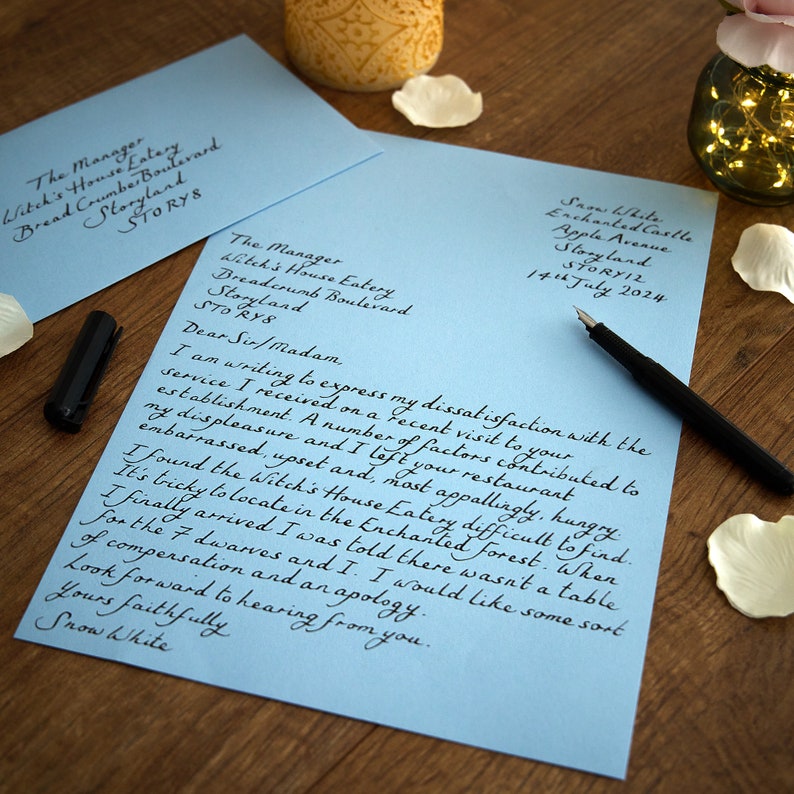 The Manager
Witch's House Eatery
Bread Crumbe Boulevard
Storyland
STORY8
Snow White
Enchanted Castle
Apple Avenue
Storyland
STORY12
14th July 2024
The Manager
Witch's House Eatery
Breadcrumb Boulevard
Storyland
STORY8
Dear Sir/Madam,
I am writing to express my dissatisfaction with the
service I received on a recent visit to your
establishment. A number of factors contributed to
my displeasure and I left your restaurant
embarrassed, upset and, most appallingly, hungry.
I found the Witch's House Eatery difficult to find.
It's tricky to locate in the Enchanted forest. When
I finally arrived I was told there wasn't a table
for the 7 dwarves and I. I would like some sort
of compensation and an apology.
Look forward to hearing from you.
Yours faithfully
Snow White